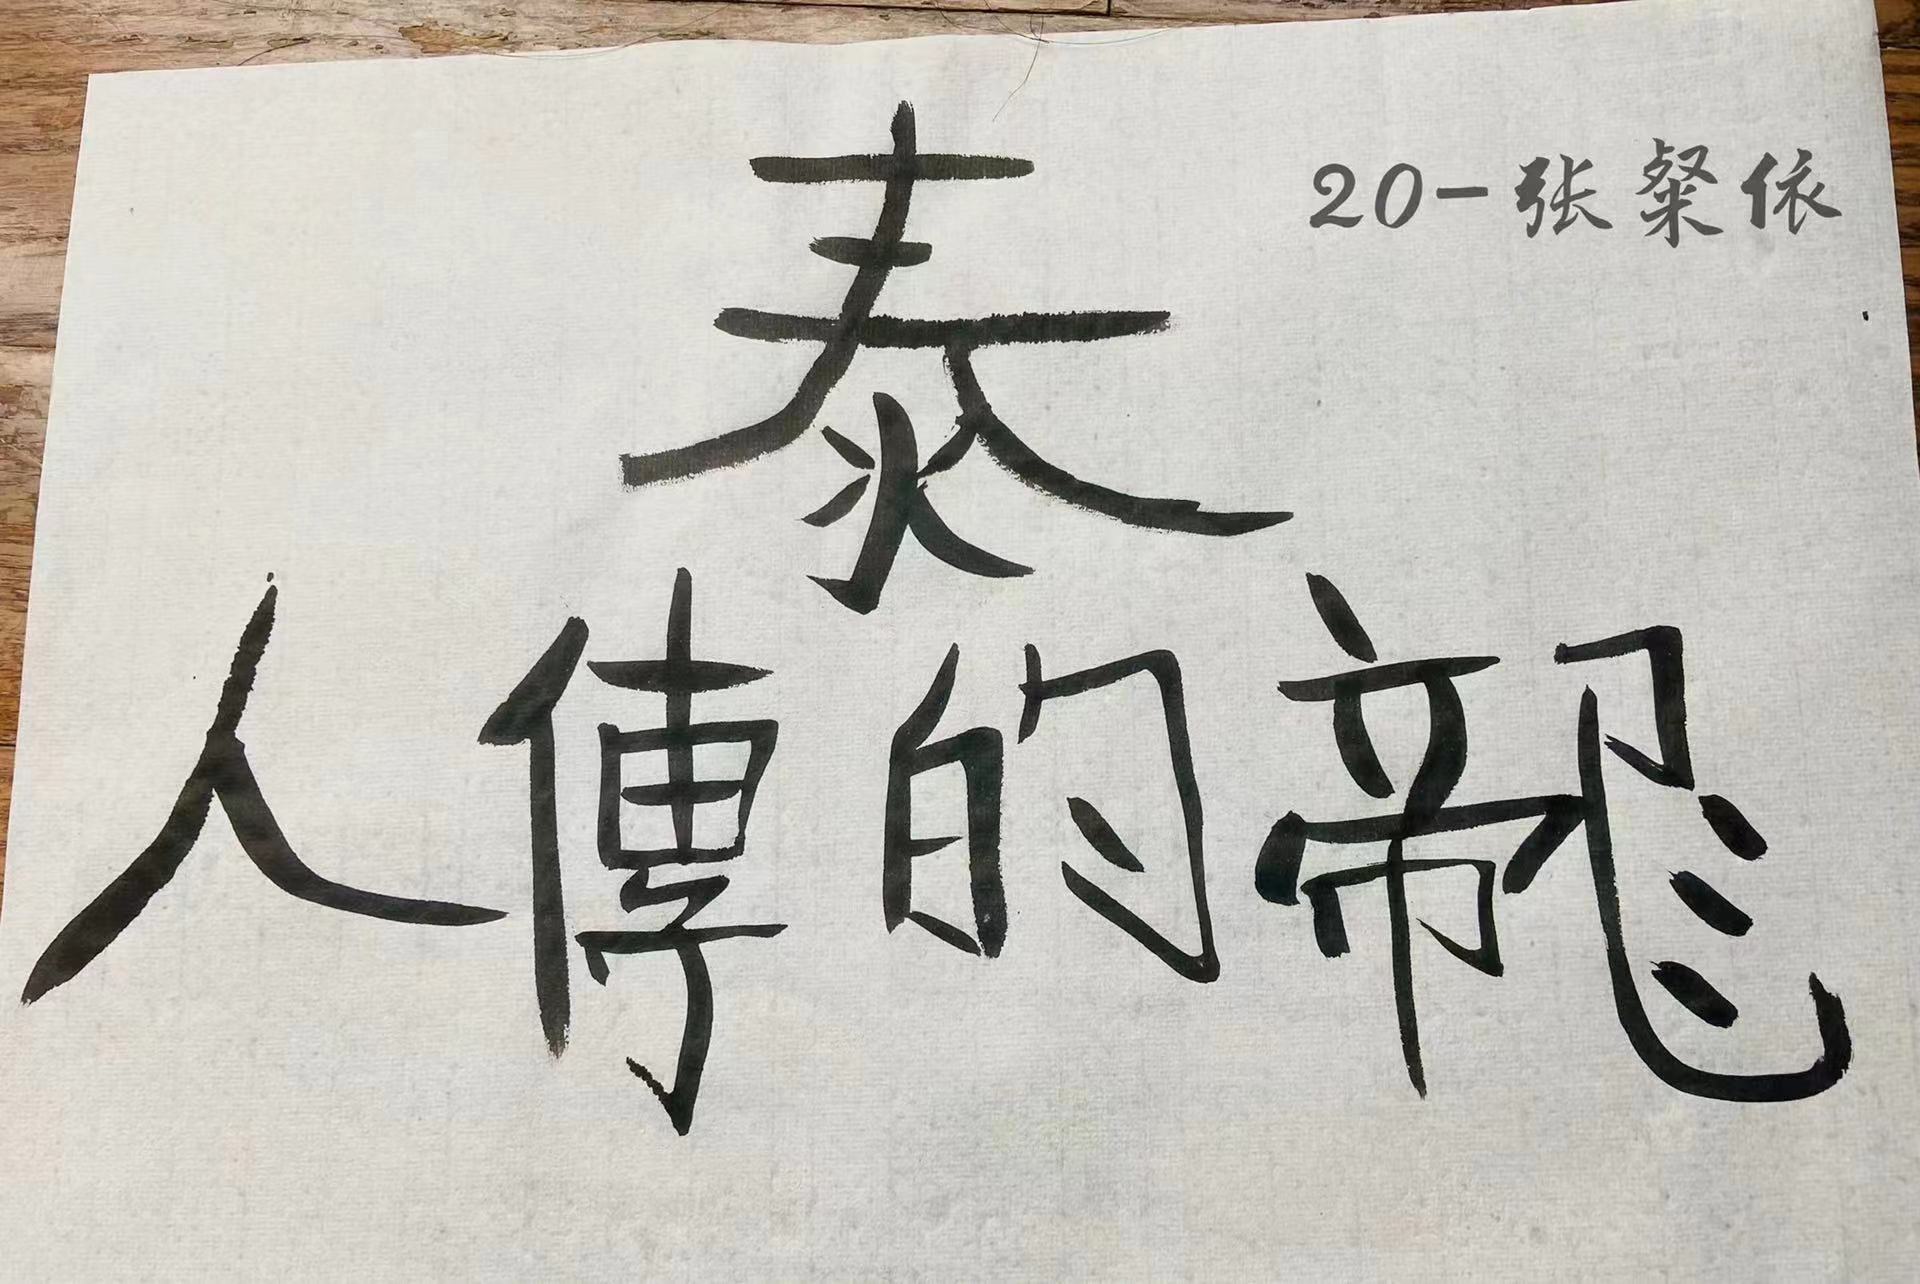 泰
20-张粲依
龍的傳人